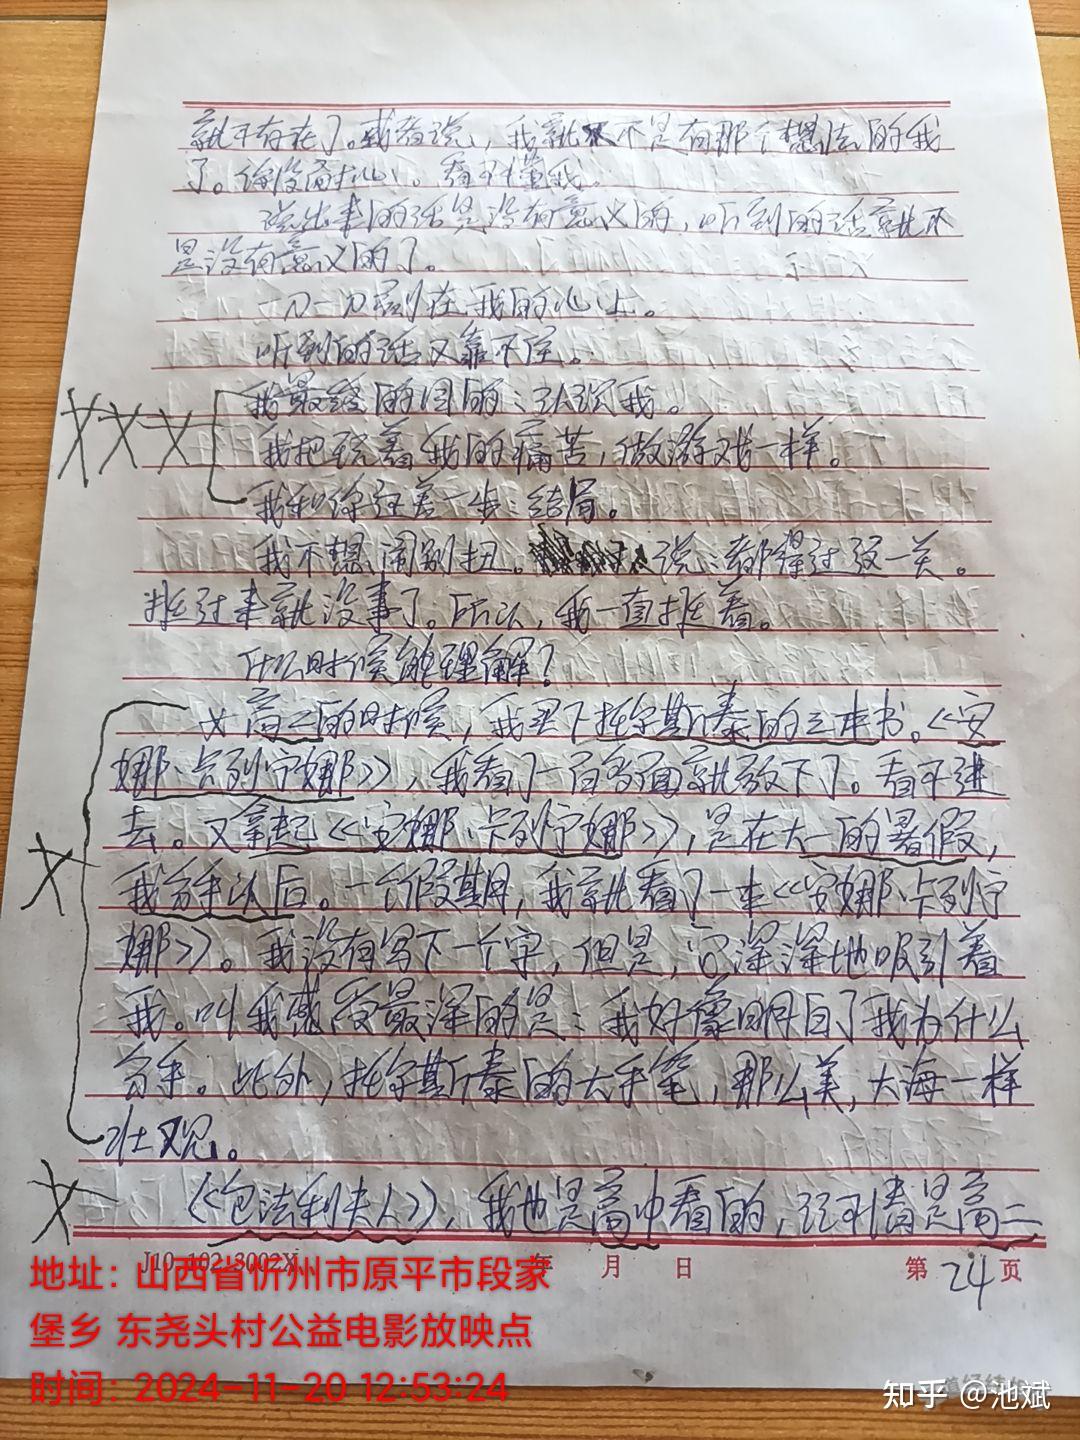 就不存在了。或者说，我就不是有那个想法的我
了。你没有扎心。看不懂我。
说出来的话是没有意义的，听到的话就不
是没有意义的了。
一刀一刀割在我的心上。
听到的话又靠不住。
我最终的目的：认识我。
我把玩着我的痛苦，做游戏一样。
我和你往差一步：结局。
我不想闹别扭。说：都得过这一关。
推过来就没事了。所以，我一直推着。
什么时候能理解？
高二的时候，我买下托尔斯泰的三本书。《安
娜·卡列宁娜》，我看了一百多面就放下了。看不进
去。又拿起《安娜·卡列宁娜》，是在大一的暑假，
我分手以后。一个假期，我就看了一本《安娜·卡列宁
娜》。我没有写下一个字，但是，它深深地吸引着
我。叫我感受最深的是：我好像明白了我为什么
分手。此外，托尔斯泰的大手笔，那么美，大海一样
壮观。
《包法利夫人》，我也是高中看的，是高二
J10-102-3002X 年 月 日 第 24 页
地址：山西省忻州市原平市段家
堡乡 东尧头村公益电影放映点
时间：2024-11-20 12:53:24
知乎 @池斌